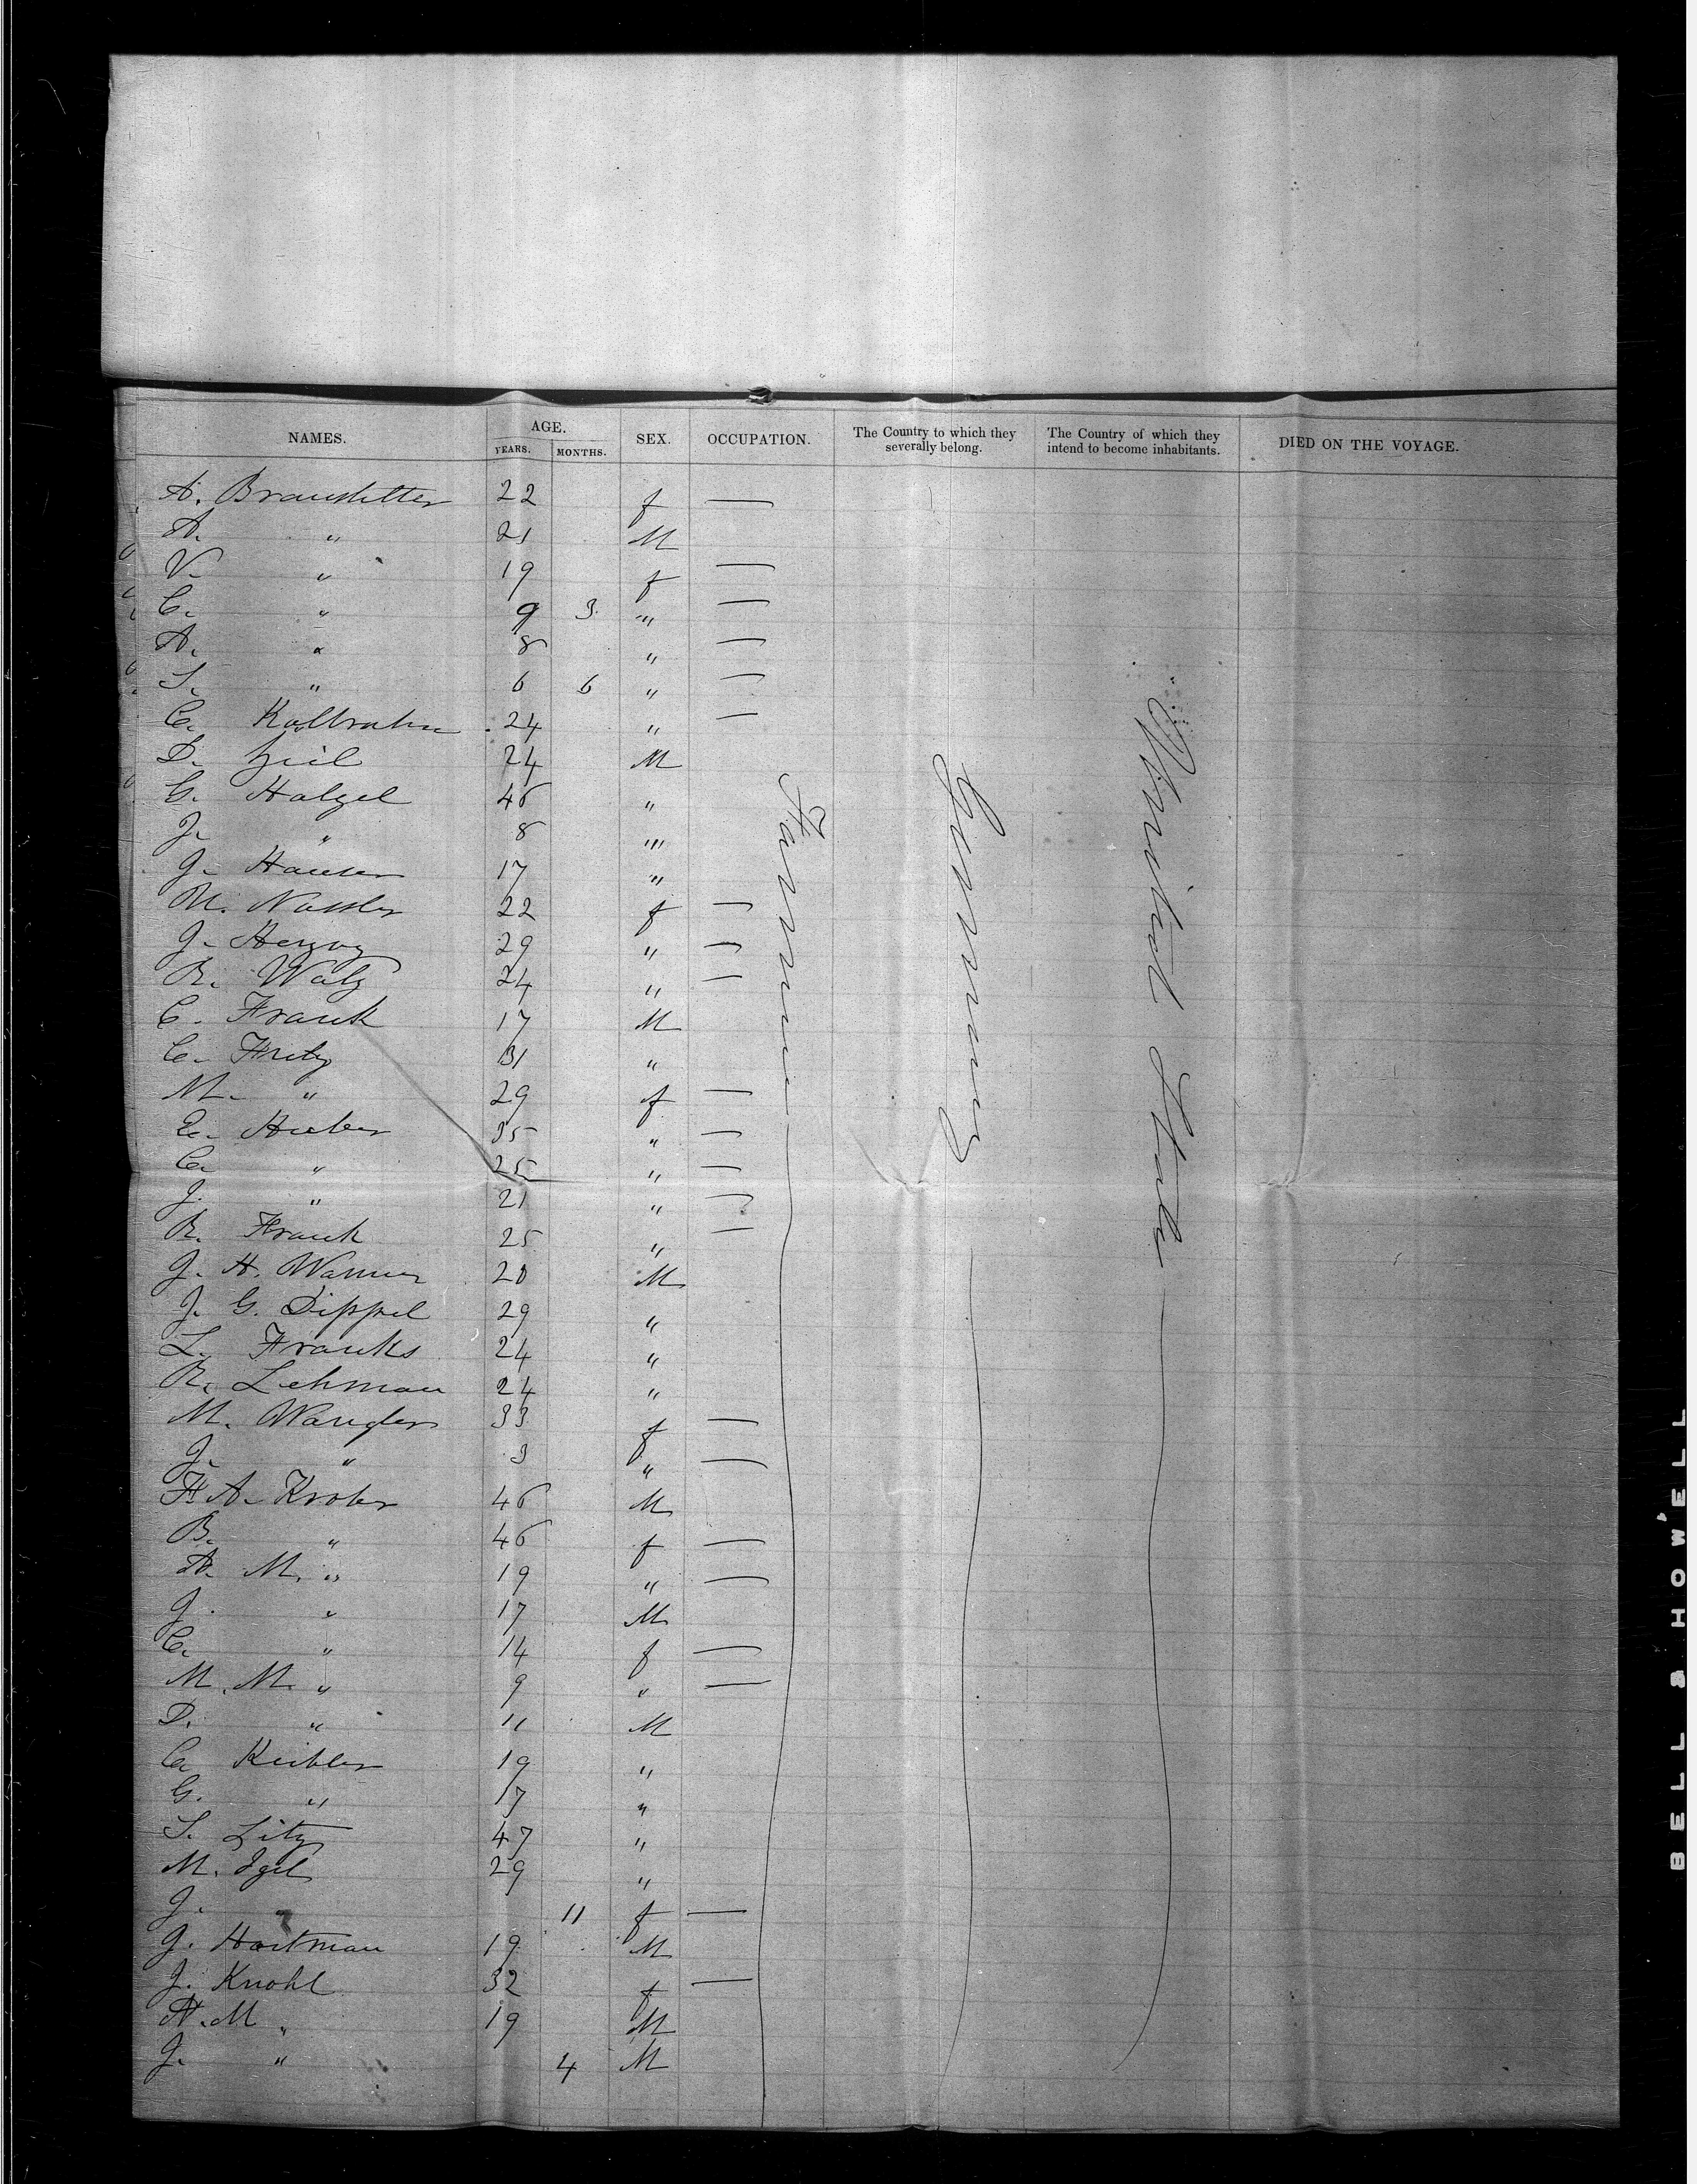 NAMES. AGE. SEX. OCCUPATION. The Country to which they severally belong. The Country of which they intend to become inhabitants. DIED ON THE VOYAGE.
YEARS. MONTHS.
A. Braustetter 22 f —
A. " 21 M
V. " 19 f —
C. " 9 3 " —
A. " 8 " —
S. " 6 6 " —
C. 24 " —
D. Zeil 24 M
G. Halzel 46 "
J. " 8 "
J. Hauser 17 "
M. Nassler 22 f —
J. Herzog 29 " —
R. Walz 24 " —
C. Frank 17 M
C. Fritz 31 "
M. " 29 f —
E. Hueber 35 " —
C. " 25 " —
J. " 21 " —
R. Frank 25 " —
J. H. Wanner 20 M
J. G. Dippel 29 "
L. Franks 24 "
R. Lehman 24 "
M. Wangler 33 f —
J. " 3 " —
F. A. Krober 46 M
B. " 46 f —
A. M. " 19 " —
J. " 17 M
C. " 14 f —
M. M. " 9 " —
D. " 11 M
C. Keibler 19 "
G. " 17 "
S. Litz 47 "
M. Igel 29 "
J. 11 f —
J. Hartman 19 M
J. Knohl 32 f —
A. M " 19 M
J. " 4 M
Farmer
Germany
United State
BELL & HOWELL